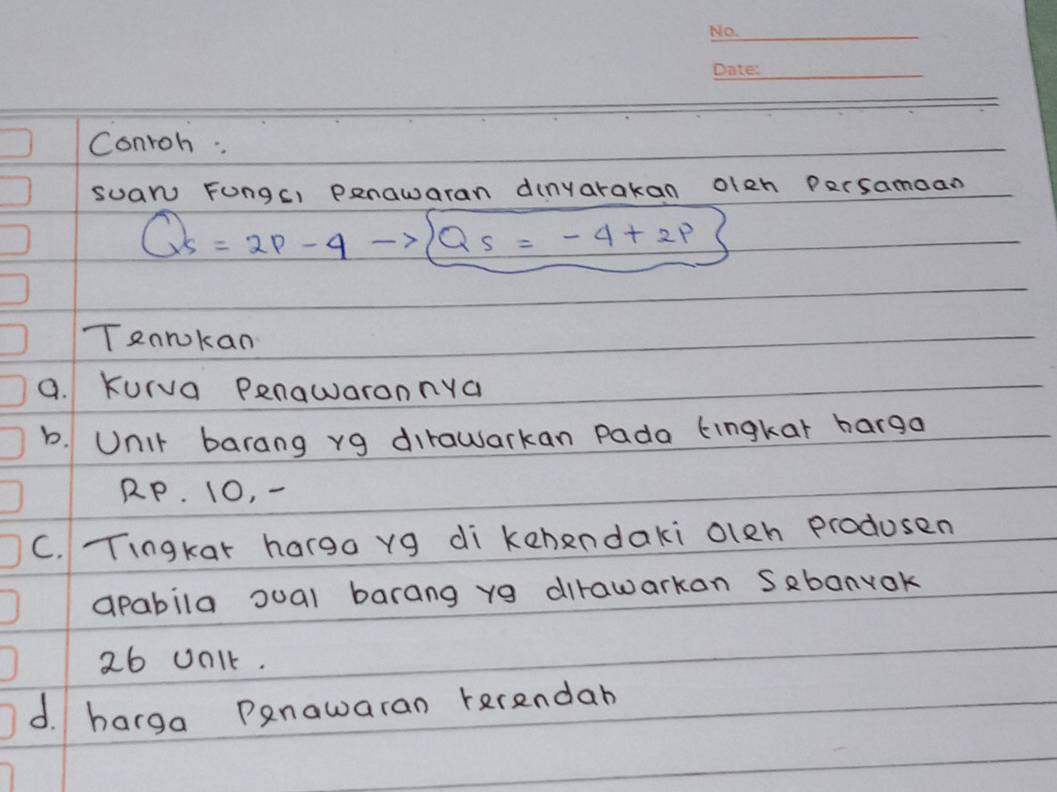 No.
Date:
Contoh :
suatu Fungsi Penawaran dinyatakan oleh Persamaan
Qs = 2P - 4 -> Qs = - 4 + 2P
Tentukan
a. Kurva Penawarannya
b. Unit barang yg ditawarkan Pada tingkat harga
RP. 10,-
C. Tingkat harga yg di kehendaki oleh produsen
apabila jual barang yg ditawarkan Sebanyak
26 unit.
d. harga Penawaran terendah